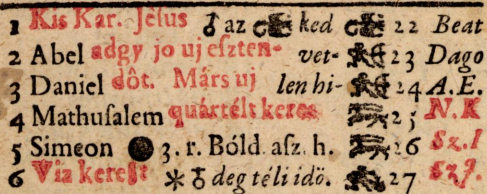 1 Kis Kar. Jêſus ♂ az ked 22 Beat
2 Abel adgy jo uj eſzten- vet- 23 Dago
3 Daniel dôt. Márs uj len hi- 24 A.E.
4 Mathuſalem quártélt keres 25 N.K
5 Simeon ● 3. r. Bóld. aſz. h. 26 Sz.I
6 Via kereſt ✶ ♁ deg téli idö. 27 Sz.J.